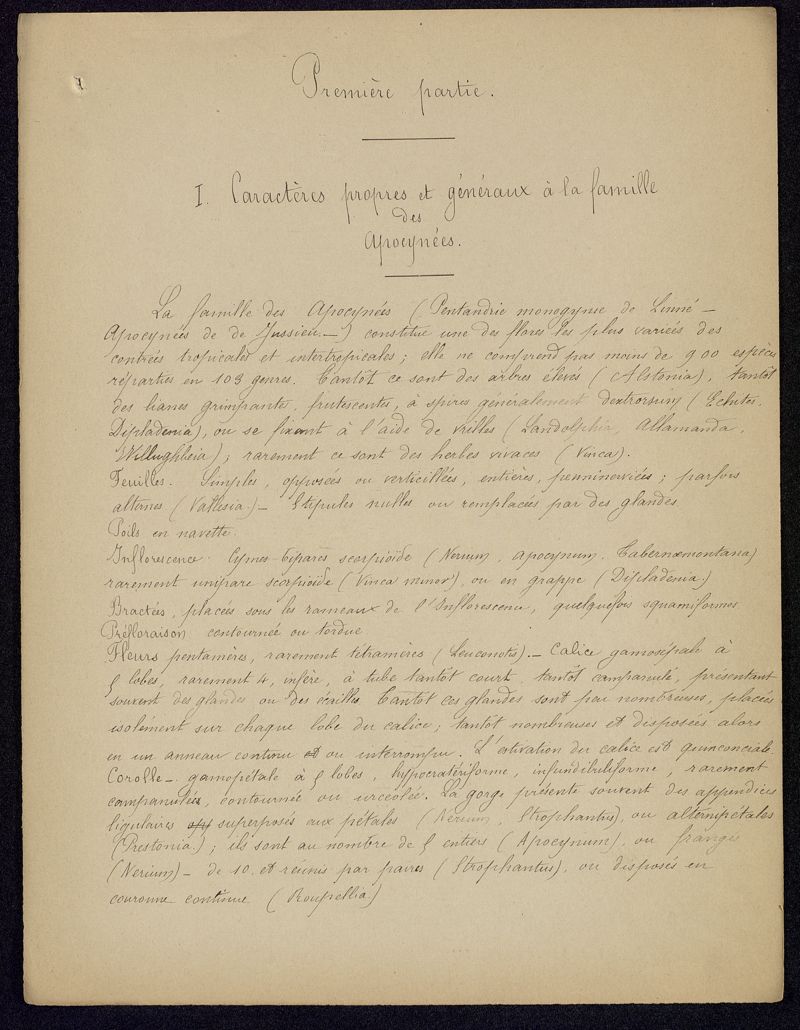 Première partie.
I. Caractères propres et généraux à la famille
des
Apocynées.
La famille des Apocynées (Pentandrie monogynie de Linné _
Apocynées de de Jussieu _) constitue une des flores les plus variées des
contrées tropicales et intertropicales ; elle ne comprend pas moins de 900 espèces
réparties en 103 genres. Tantôt ce sont des arbres élevés (Alstonia), tantôt
des lianes grimpantes, frutescentes, à spires généralement dextrorsum (Echites,
Dipladenia), ou se fixant à l'aide de vrilles (Landolphia Allamanda,
Willughbeia) ; rarement ce sont des herbes vivaces (Vinca).
Feuilles. Simples, opposées ou verticillées, entières, penninerviées ; parfois
alternes (Vallesia) _ Stipules nulles ou remplacées par des glandes
Poils en navette.
Inflorescence. Cymes bipares scorpioïde (Nerium, Apocynum, Tabernæmontana)
rarement unipare scorpioïde (Vinca minor), ou en grappe (Dipladenia)
Bractées, placées sous les rameaux de l'Inflorescence, quelquefois squamiformes
Préfloraison contournée ou tordue
Fleurs pentamères, rarement tétramères (Leuconotis). _ Calice gamosépale à
5 lobes, rarement 4, infère, à tube tantôt court, tantôt campanulé, présentant
souvent des glandes ou des écailles. Tantôt ces glandes sont peu nombreuses, placées
isolément sur chaque lobe du calice ; tantôt nombreuses et disposées alors
en un anneau continu et ou interrompu. L'estivation du calice est quinconciale.
Corolle _ gamopétale à 5 lobes, hypocratériforme, infundibuliforme, rarement
campanulée, contournée ou urcéolée. La gorge présente souvent des appendices
ligulaires opp superposés aux pétales (Nerium, Strophantus), ou alternipétales
(Prestonia) ; ils sont au nombre de 5 entiers (Apocynum), ou frangés
(Nerium) _ de 10 et réunis par paires (Strophantus), ou disposés en
couronne continue (Roupellia)